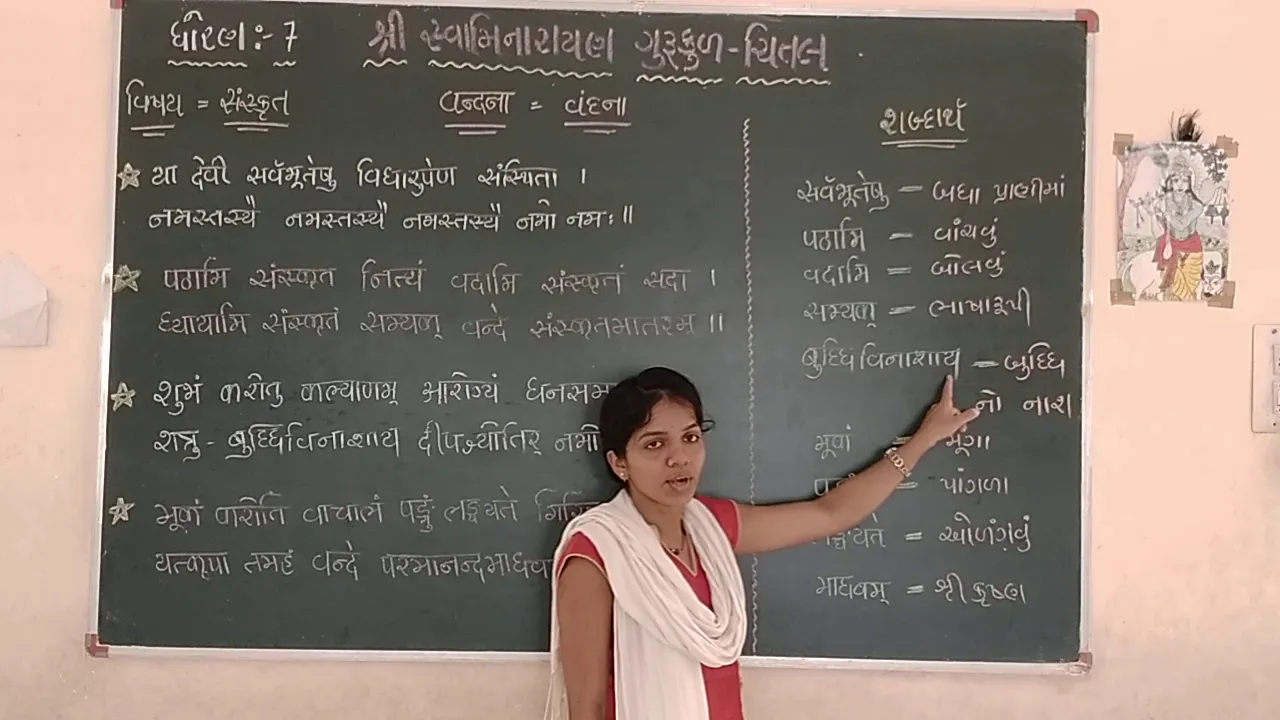 ધોરણ:- 7
શ્રી સ્વામિનારાયણ ગુરૂકુળ-ચિતલ
વિષય = સંસ્કૃત
वन्दना = વંદના
या देवी सर्वभूतेषु विद्यारुपेण संस्थिता ।
नमस्तस्यै नमस्तस्यै नमस्तस्यै नमो नमः ॥
पठामि संस्कृत नित्यं वदामि संस्कृतं सदा ।
ध्यायामि संस्कृतं सम्यक् वन्दे संस्कृतमातरम् ॥
शुभं करोतु कल्याणम् आरोग्यं
शत्रु - बुध्धिविनाशाय दीपज्योतिर्
मूकं करोति वाचालं पङ्गुं लङ्घयते
यत्कृपा तमहं वन्दे
શબ્દાર્થ
सर्वभूतेषु = બધા પ્રાણીમાં
पठामि = વાંચવું
वदामि = બોલવું
सम्यक् = ભાષારૂપી
बुध्धिविनाशाय = બુધ્ધિ
નો નાશ
मूकं = મૂંગા
= પાંગળા
= ઓળંગવું
माधवम् = શ્રી કૃષ્ણ